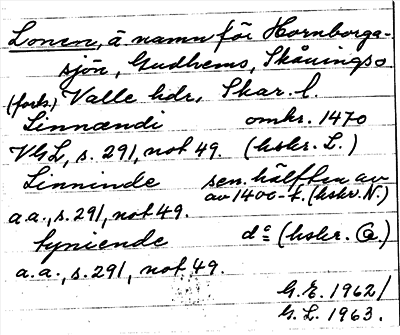 Lonen, ä namn för Hornborga-
sjön, Gudhems, Skånings o
(forts.) Valle hdr, Skar. l.
Linnændi omkr. 1470
VGL, s. 291, not 49. (hskr. L.)
Linninde sen. hälften av
av 1400-t. (hskr. N.)
a.a., s. 291, not 49.
tyniende d:o (hskr. G.)
a.a., s. 291, not 49.
G.E. 1962/
G.L. 1963.